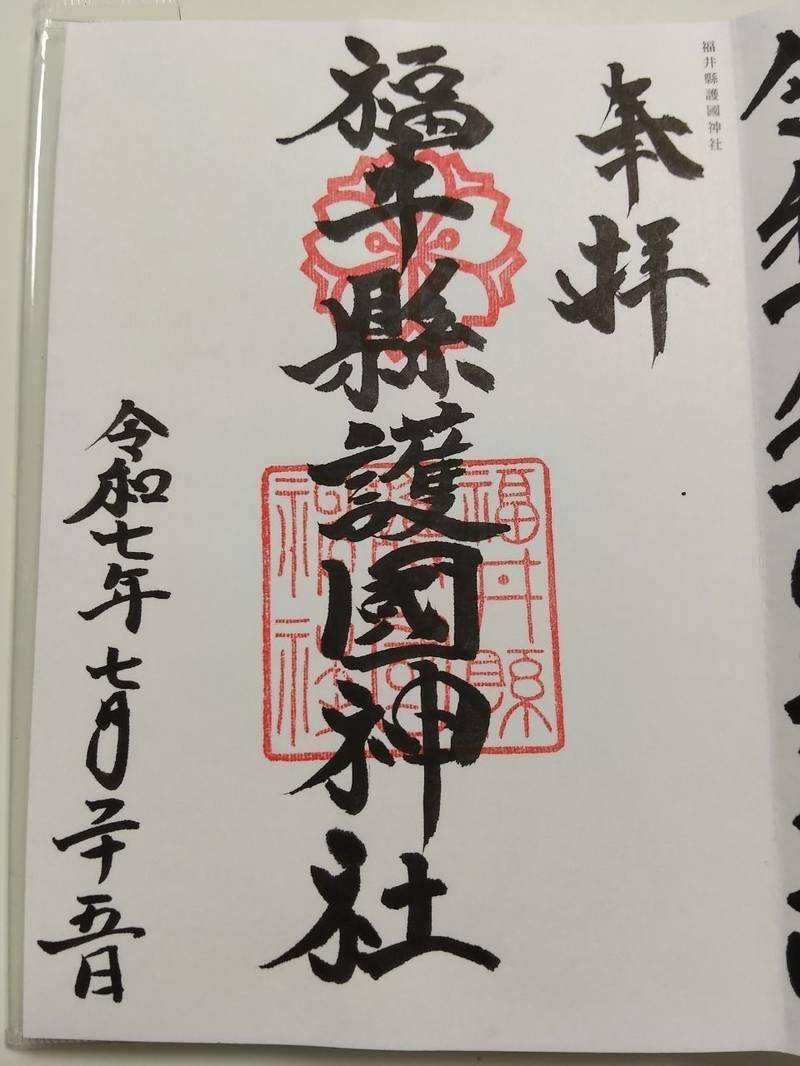 福井縣護國神社
奉拝
福井縣護國神社
福井縣
神社
令和七年七月二十五日